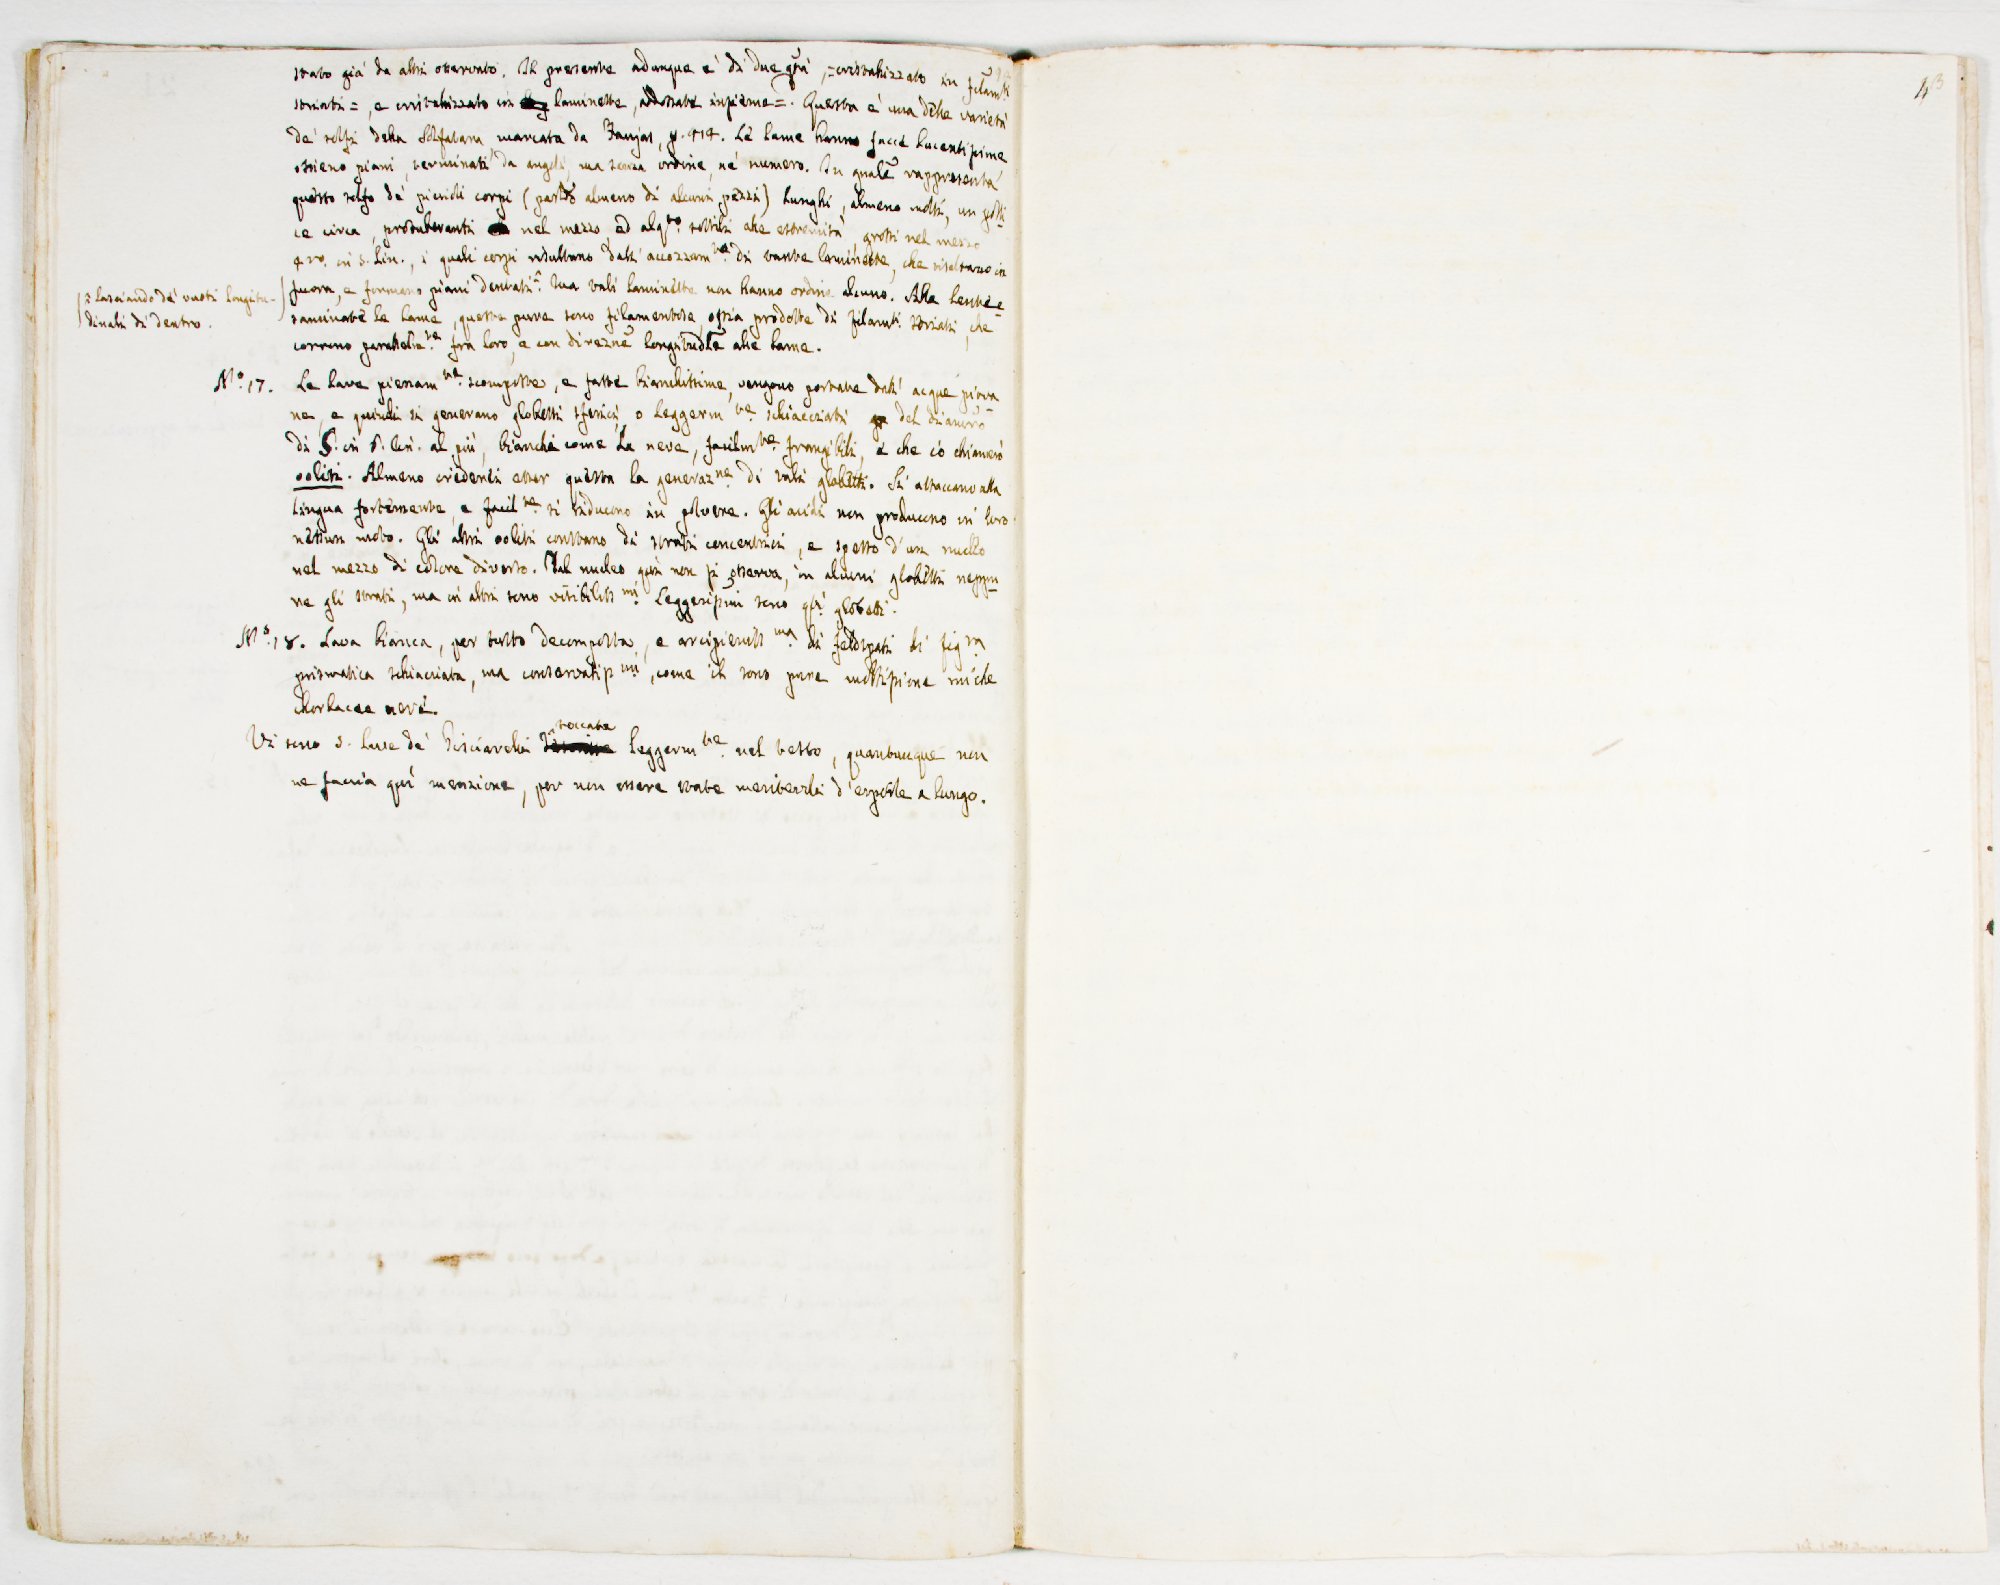 stato già da altri osservato. Il presente adunque è di due qtà, = cristalizzato in filamti
striati =, e cristalizzato in laminette, addossate insieme =. Questa è una delle varietà
de' solfi della Solfatara marcata da Faujas, p. 414. Le lame hanno facce lucentissime
ossieno piani, terminati da angoli, ma senza ordine, nè numero. In qualche rappresenta
questo solfo de' piccioli corpi (parlo almeno di alcuni pezzi) lunghi, almeno molti, un polli-
ce circa, protuberanti nel mezzo, ed alqto sottili alle estremità, grossi nel mezzo
4. in 5. Lin., i quali corpi risultano dall' accozzamte di tante laminette, che risaltano in
fuora, e formano piani dentati. Ma tali laminette non hanno ordine alcuno. Alla lente e-
saminate le lame, queste pure sono filamentose, ossia prodotte di filamti striati, che
corrono parallelte fra loro, e con direzne longitudle alle lame.
= lasciando de' vuoti longitu-
dinali di dentro.
No. 17. Le lave pienamte scomposte, e fatte bianchissime, vengono portate dall' acque piova
ne, e quindi si generano globetti sferici, o leggermte schiacciati del diamro
di 5. in 6. lin. al più, bianchi come la neve, facilmte frangibili, e che io chiamerò
ooliti. Almeno crederei esser questa la generazne di tali globetti. Si attaccano alla
lingua fortemente, e facilte si riducono in polvere. Gli acidi non producono in loro
nessun moto. Gli altri ooliti constano di strati concentrici, e spesso d'un nucleo
nel mezzo di colore diverso. Tal nucleo quì non si osserva, in alcuni globetti neppu-
re gli strati, ma in altri sono visibilissmi. Leggerissimi sono qti globetti.
No. 18. Lava bianca, per tutto decomposta, e arcipienissma di feldspati di figra
prismatica schiacciata, ma conservatissmi, come il sono pure moltissime miche
chorlacee nere.
Vi sono 3. lave de' Pisciarelli toccate leggermte nel testo, quantunque non
ne faccia quì menzione, per non essere state meritevoli d'esporle a lungo.
43